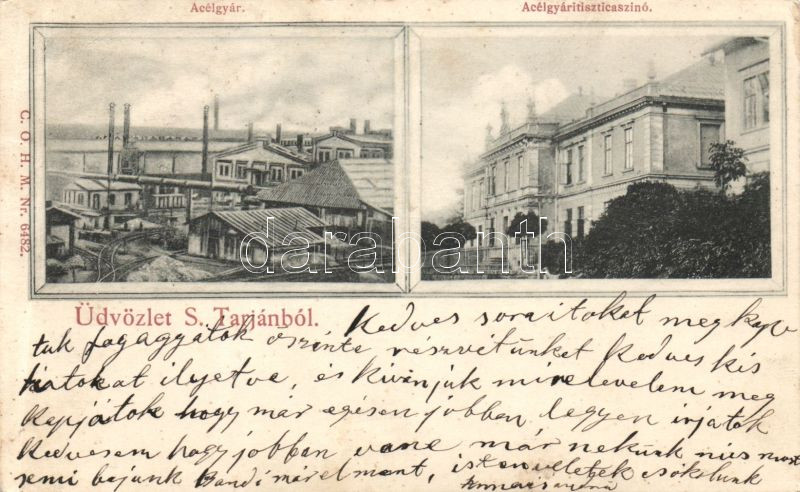 Acélgyár.
Acélgyáritiszticaszinó.
C. O. H. M. Nr. 6482.
darabanth
Üdvözlet S. Tarjánból.
Kedves soraitoket megkap
tuk fogaggyátok őszinte részvétünket Kedves kis
fiatokat ilyetve, és kivánjuk mire levelem meg
kapjátok hogy már egésen jobban legyen irjatok
Kedvesem hogy jobban vane már nekünk nics most
semi bajunk Bandi már elment, isten veletek csókolunk